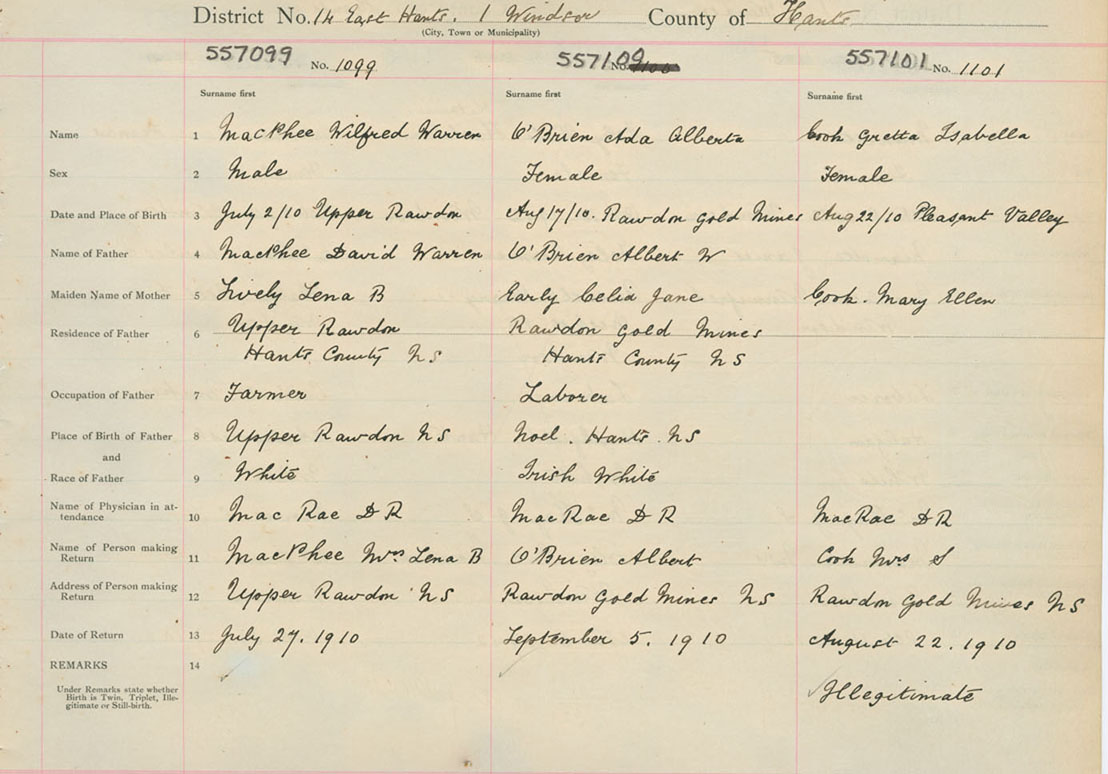 District No. 14 East Hants. 1 Windsor County of Hants
(City, Town or Municipality)
557099 No. 1099 557100 No. 557101 No. 1101
Surname first Surname first Surname first
Name 1 MacPhee Wilfred Warren O'Brien Ada Alberta Cook Gretta Isabella
Sex 2 Male Female Female
Date and Place of Birth 3 July 2/10 Upper Rawdon Aug 17/10. Rawdon Gold Mines Aug 22/10 Pleasant Valley
Name of Father 4 MacPhee David Warren O'Brien Albert W
Maiden Name of Mother 5 Lively Lena B Early Celia Jane Cook. Mary Ellen
Residence of Father 6 Upper Rawdon Rawdon Gold Mines
Hants County NS Hants County NS
Occupation of Father 7 Farmer Laborer
Place of Birth of Father 8 Upper Rawdon NS Noel. Hants. NS
and
Race of Father 9 White Irish White
Name of Physician in at-
tendance 10 MacRae DR MacRae DR MacRae DR
Name of Person making
Return 11 MacPhee Mrs Lena B O'Brien Albert Cook Mrs S
Address of Person making
Return 12 Upper Rawdon NS Rawdon Gold Mines NS Rawdon Gold Mines NS
Date of Return 13 July 27. 1910 September 5. 1910 August 22. 1910
REMARKS 14
Under Remarks state whether
Birth is Twin, Triplet, Ille-
gitimate or Still-birth.
Illegitimate